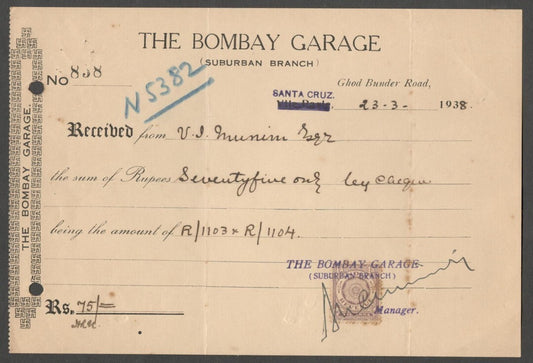 THE BOMBAY GARAGE
(SUBURBAN BRANCH)
No 838
N5382
Ghod Bunder Road,
SANTA CRUZ.
23-3- 1938.
Received from V. J. Munim Esqr
the sum of Rupees Seventyfive only by Cheque
being the amount of R/1103 & R/1104.
THE BOMBAY GARAGE
(SUBURBAN BRANCH)
Manager.
Rs. 75/-
THE BOMBAY GARAGE.